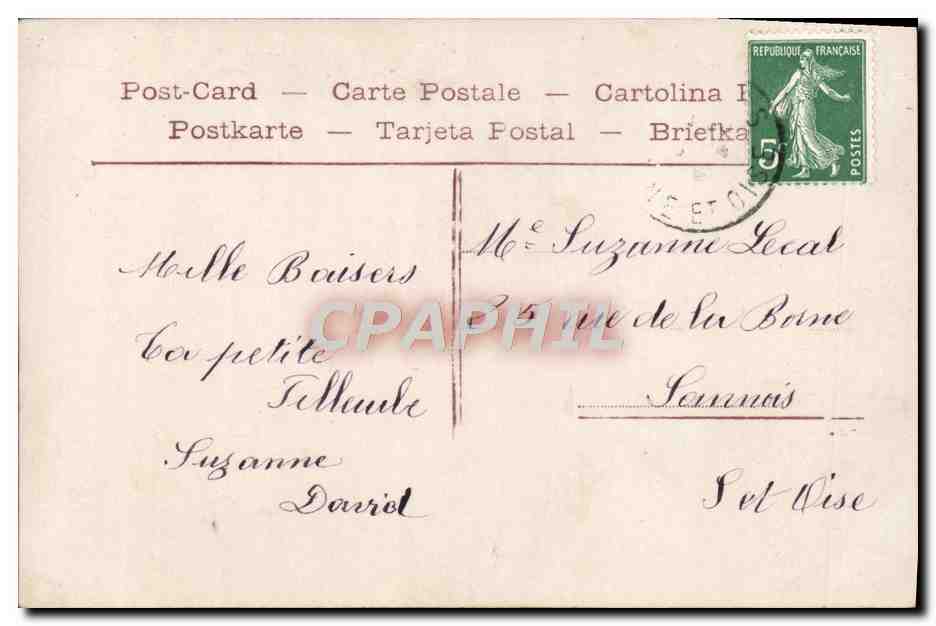 Post-Card — Carte Postale — Cartolina
Postkarte — Tarjeta Postal — Briefka
REPUBLIQUE FRANÇAISE
5
POSTES
ET OISE
Mille Baisers
Ta petite
Filleule
Suzanne
David
Mᵉ Suzanne Lecal
rue de la Borne
Sannois
S et Oise
CPAPHIL